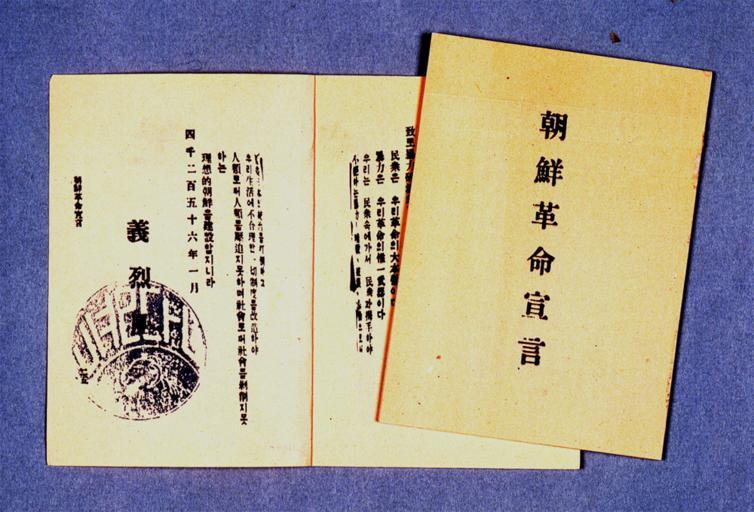 朝鮮革命宣言
民衆은 우리革命의大本營이
暴力은 우리革命의惟一武器이다
우리는 民衆속에가서 民衆과携手하야
우리生活에不合理한一切制度를改造하야
人類로써人類를壓迫지못하며社會로써社會를剝削지못
하는
理想的朝鮮을建設할지니라
四千二百五十六年一月
義烈團
朝鮮革命宣言